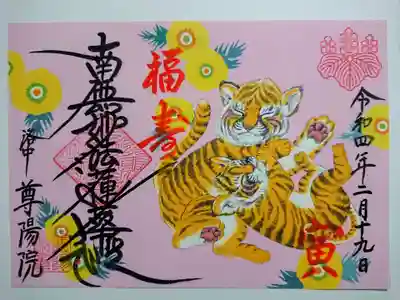 令和四年二月十九日
寅
福寿
南無妙法蓮華経
尊陽院